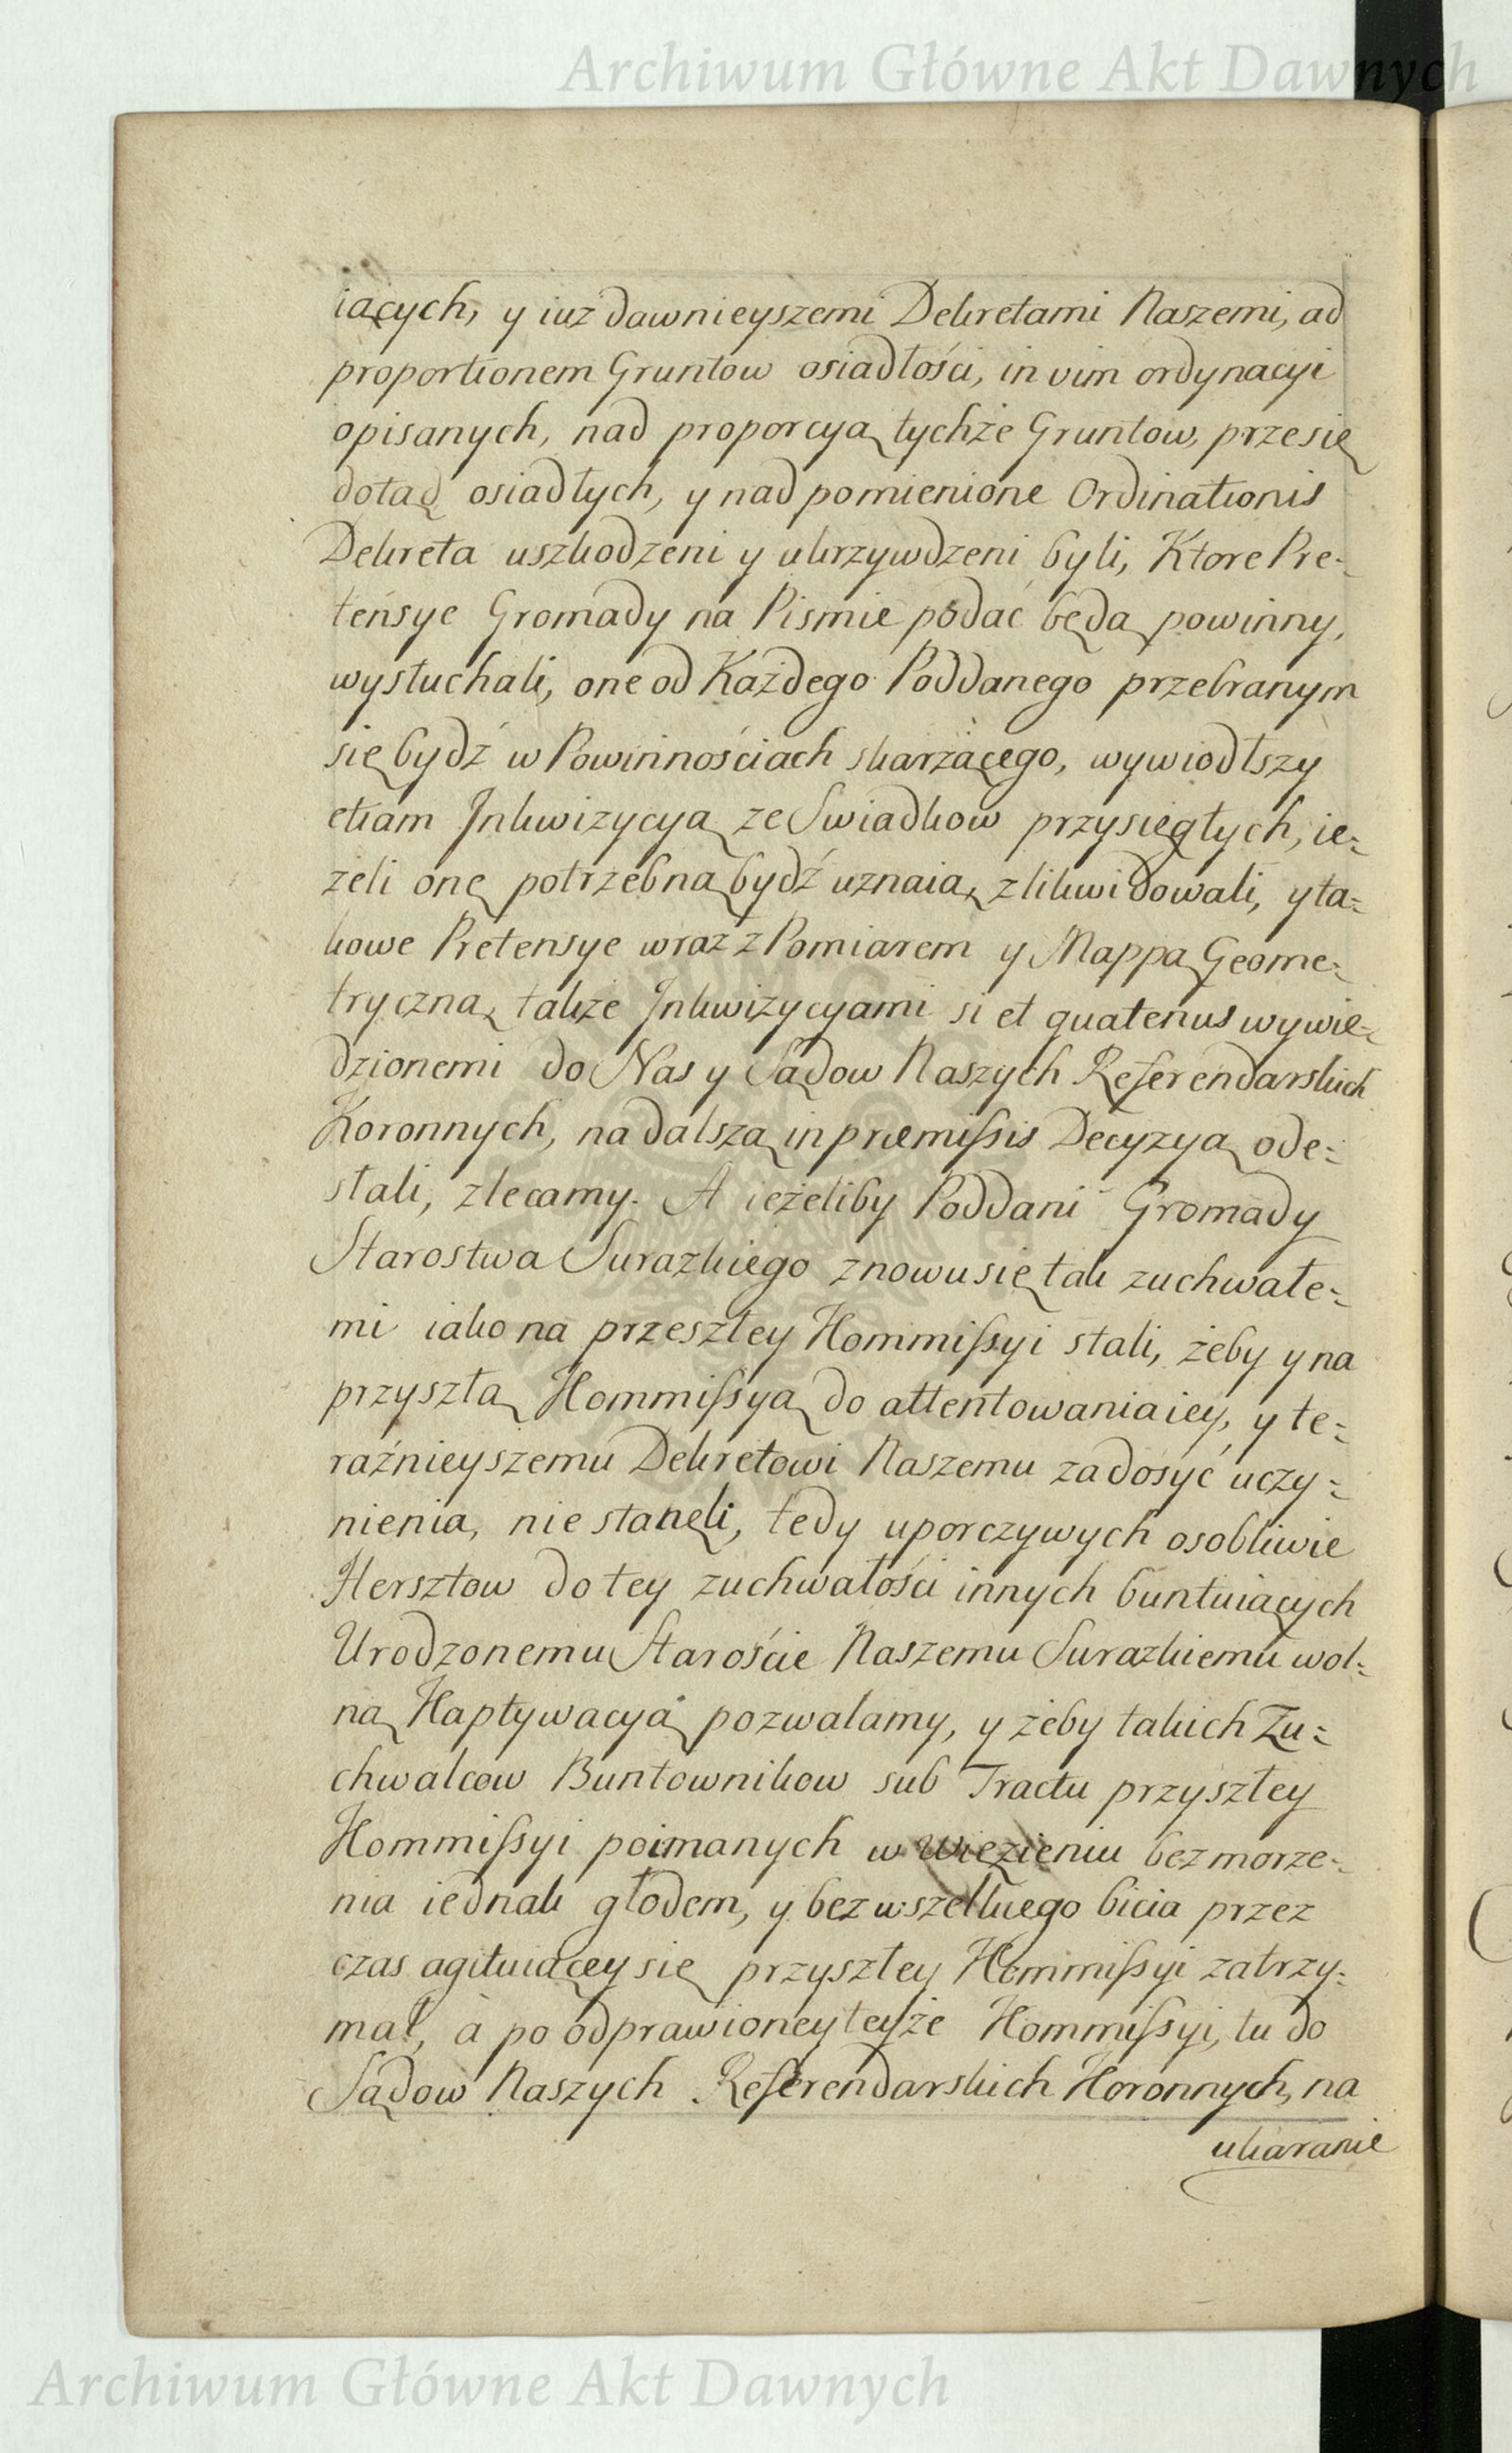 Archiwum Główne Akt Dawnych
iących, y iuż dawnieyszemi Dekretami Naszemi, ad
proportionem Gruntow osiadłości, in vim ordynacyi
opisanych, nad proporcyą tychże Gruntow, przesię
dotąd osiadłych, y nad pomienione Ordinationis
Dekreta uszkodzeni y ukrzywdzeni byli, Ktore Pre=
tensye Gromady na Pismie podać będą powinny,
wysłuchali, one od Każdego Poddanego przebranym
się bydź w Powinnościach skarżącego, wywiodłszy
etiam Inkwizycyą ze Swiadkow przysięgłych, ie=
żeli onę potrzebną bydź uznaią, zlikwidowali, y ta=
kowe Pretensye wraz z Pomiarem y Mappą Geome=
tryczną, także Inkwizycyami si et quatenus wywie=
dzionemi do Nas y Sądow Naszych Referendarskich
Koronnych, na dalszą in præmissis Decyzyą ode=
słali, zlecamy. A ieżeliby Poddani Gromady
Starostwa Surazkiego znowu się tak zuchwałe=
mi iako na przeszłey Kommissyi stali, żeby y na
przyszłą Kommissyą do attentowania iey, y te=
raźnieyszemu Dekretowi Naszemu zadosyć uczy=
nienia, nie staneli, tedy uporczywych osobliwie
Hersztow do tey zuchwałości innych buntuiących
Urodzonemu Staroście Naszemu Surazkiemu wol=
ną Kaptywacyą pozwalamy, y żeby takich Zu=
chwalcow Buntownikow sub Tractu przyszłey
Kommissyi poimanych w więzieniu bez morze=
nia iednak głodem, y bez wszelkiego bicia przez
czas agituiącey się przyszłey Kommissyi zatrzy=
mał, à po odprawioney teyże Kommissyi, tu do
Sądow Naszych Referendarskich Koronnych, na
ukaranie
Archiwum Główne Akt Dawnych